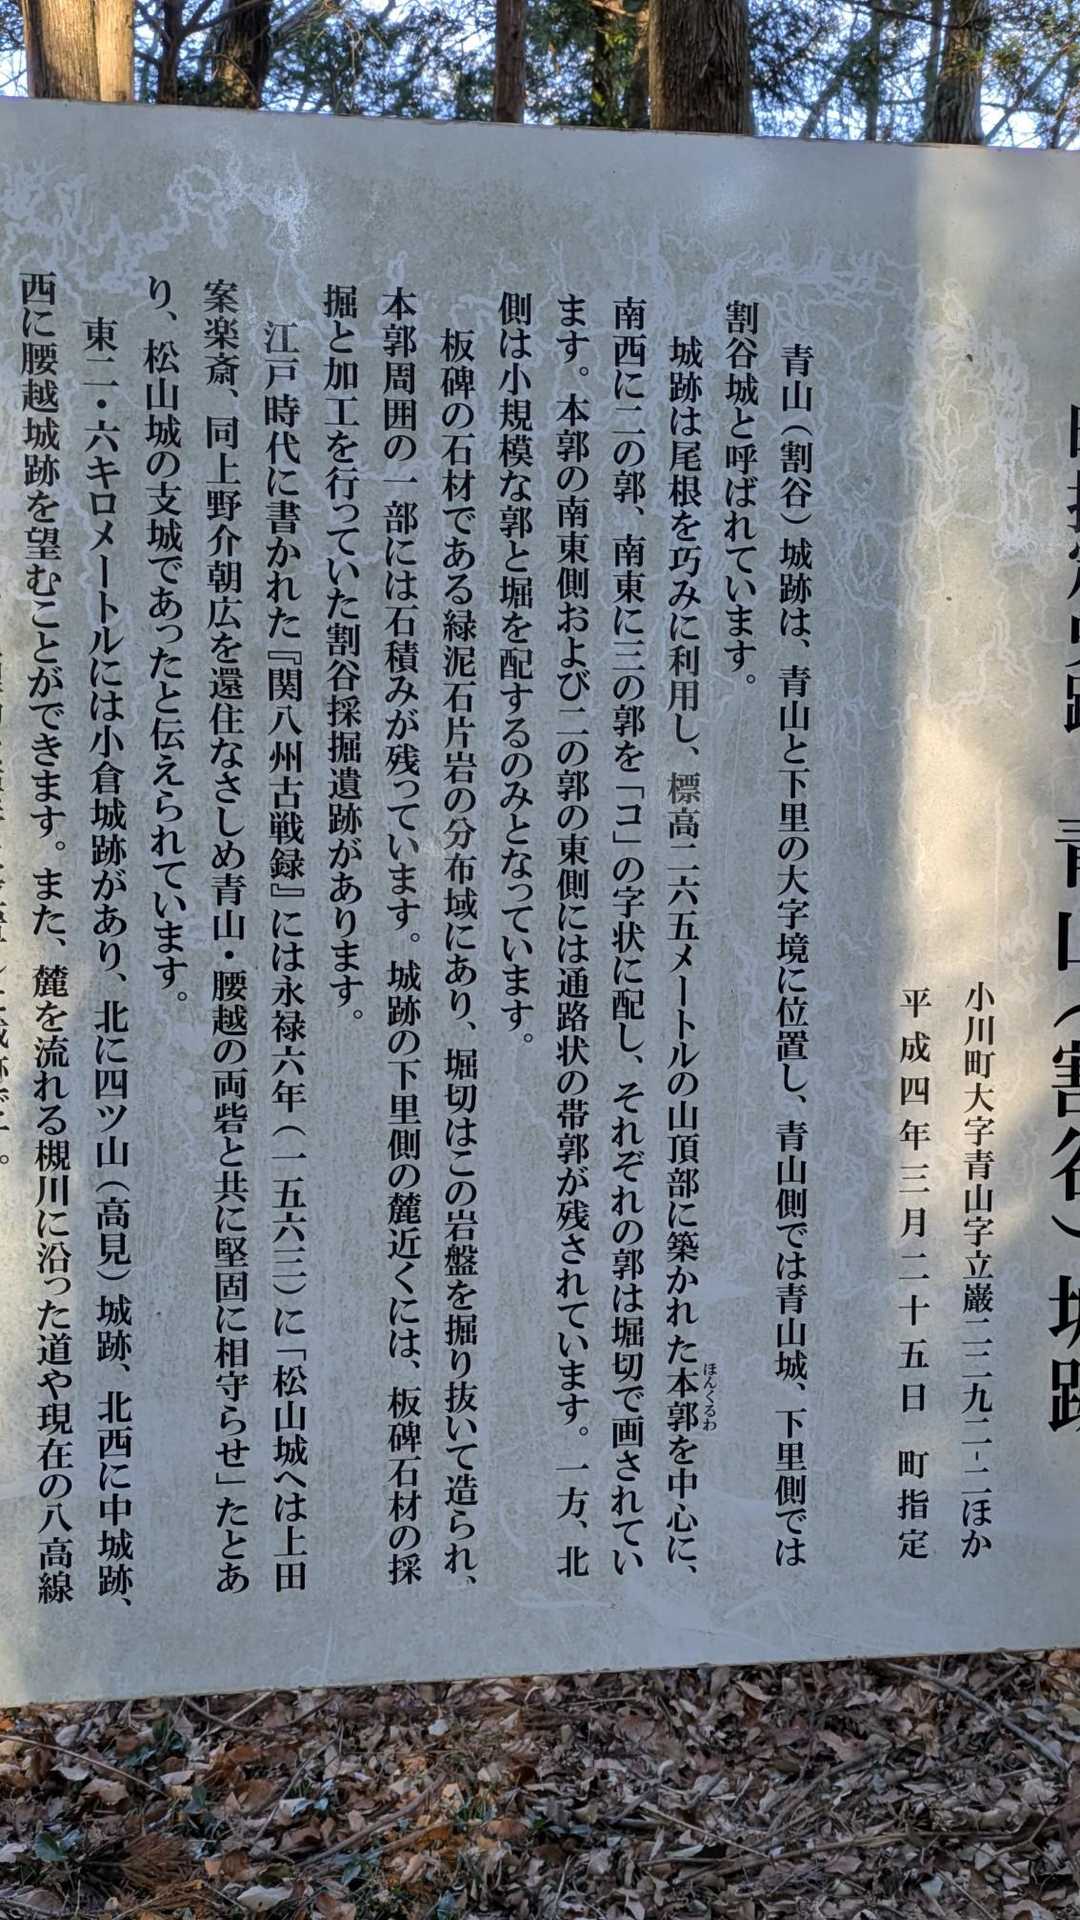 青山（割谷）城跡
小川町大字青山字立巌二二九二-二ほか
平成四年三月二十五日　町指定
青山（割谷）城跡は、青山と下里の大字境に位置し、青山側では青山城、下里側では
割谷城と呼ばれています。
城跡は尾根を巧みに利用し、標高二六五メートルの山頂部に築かれた本郭を中心に、
ほんくるわ
南西に二の郭、南東に三の郭を「コ」の字状に配し、それぞれの郭は堀切で画されてい
ます。本郭の南東側および二の郭の東側には通路状の帯郭が残されています。一方、北
側は小規模な郭と堀を配するのみとなっています。
板碑の石材である緑泥石片岩の分布域にあり、堀切はこの岩盤を掘り抜いて造られ、
本郭周囲の一部には石積みが残っています。城跡の下里側の麓近くには、板碑石材の採
掘と加工を行っていた割谷採掘遺跡があります。
江戸時代に書かれた『関八州古戦録』には永禄六年（一五六三）に「松山城へは上田
案楽斎、同上野介朝広を還住なさしめ青山・腰越の両砦と共に堅固に相守らせ」たとあ
り、松山城の支城であったと伝えられています。
東二・六キロメートルには小倉城跡があり、北に四ツ山（高見）城跡、北西に中城跡、
西に腰越城跡を望むことができます。また、麓を流れる槻川に沿った道や現在の八高線